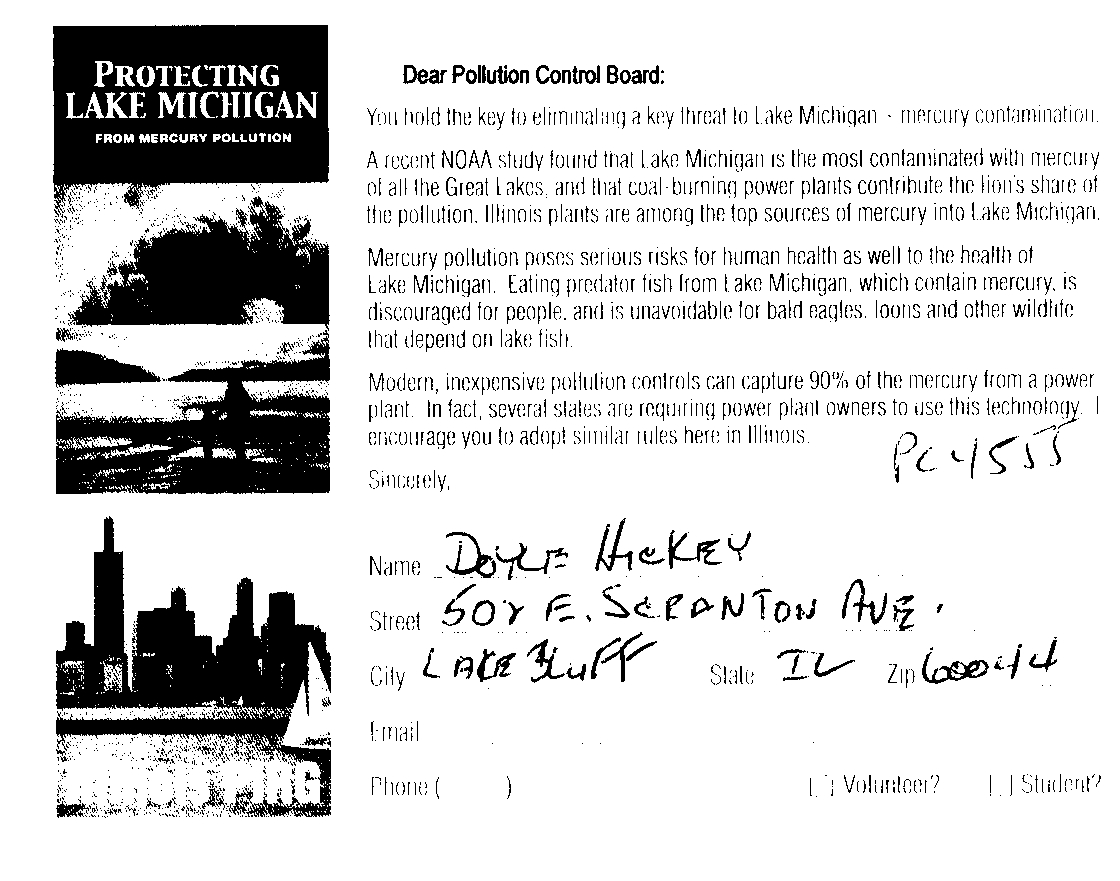 PROTECTING
LAKE MICHIGAN
FROM MERCURY POLLUTION
ILLINOIS PIRG
Dear Pollution Control Board:
You hold the key to eliminating a key threat to Lake Michigan - mercury contamination.
A recent NOAA study found that Lake Michigan is the most contaminated with mercury
of all the Great Lakes, and that coal-burning power plants contribute the lion's share of
the pollution. Illinois plants are among the top sources of mercury into Lake Michigan.
Mercury pollution poses serious risks for human health as well to the health of
Lake Michigan. Eating predator fish from Lake Michigan, which contain mercury, is
discouraged for people, and is unavoidable for bald eagles, loons and other wildlife
that depend on lake fish.
Modern, inexpensive pollution controls can capture 90% of the mercury from a power
plant. In fact, several states are requiring power plant owners to use this technology. I
encourage you to adopt similar rules here in Illinois.
PC 4555
Sincerely,
Name DOYLE HICKEY
Street E. SCRANTON AVE.
City LAKE BLUFF State IL Zip 60044
Email
Phone ( )
[ ] Volunteer? [ ] Student?